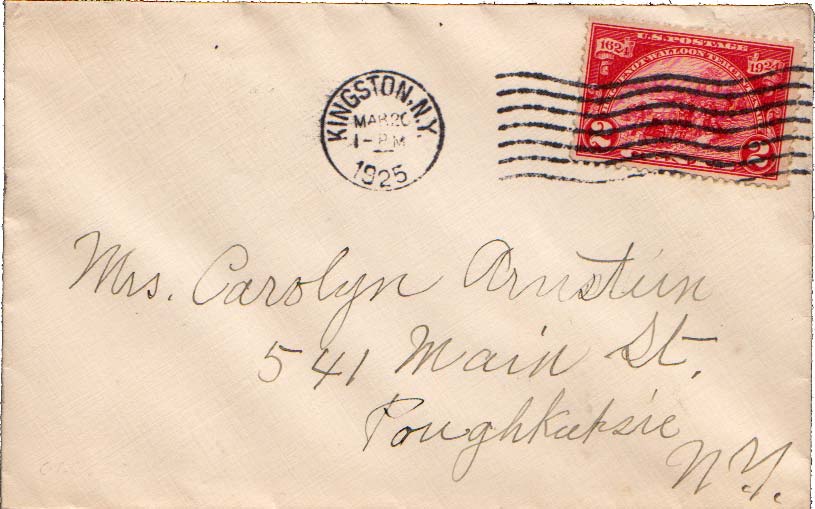 KINGSTON, N.Y.
MAR 20
1-PM
1925
U.S. POSTAGE
1624 1924
HUGUENOT-WALLOON TERCENTENARY
2 2
Mrs. Carolyn Arnstein
541 Main St.
Poughkeepsie
N.Y.